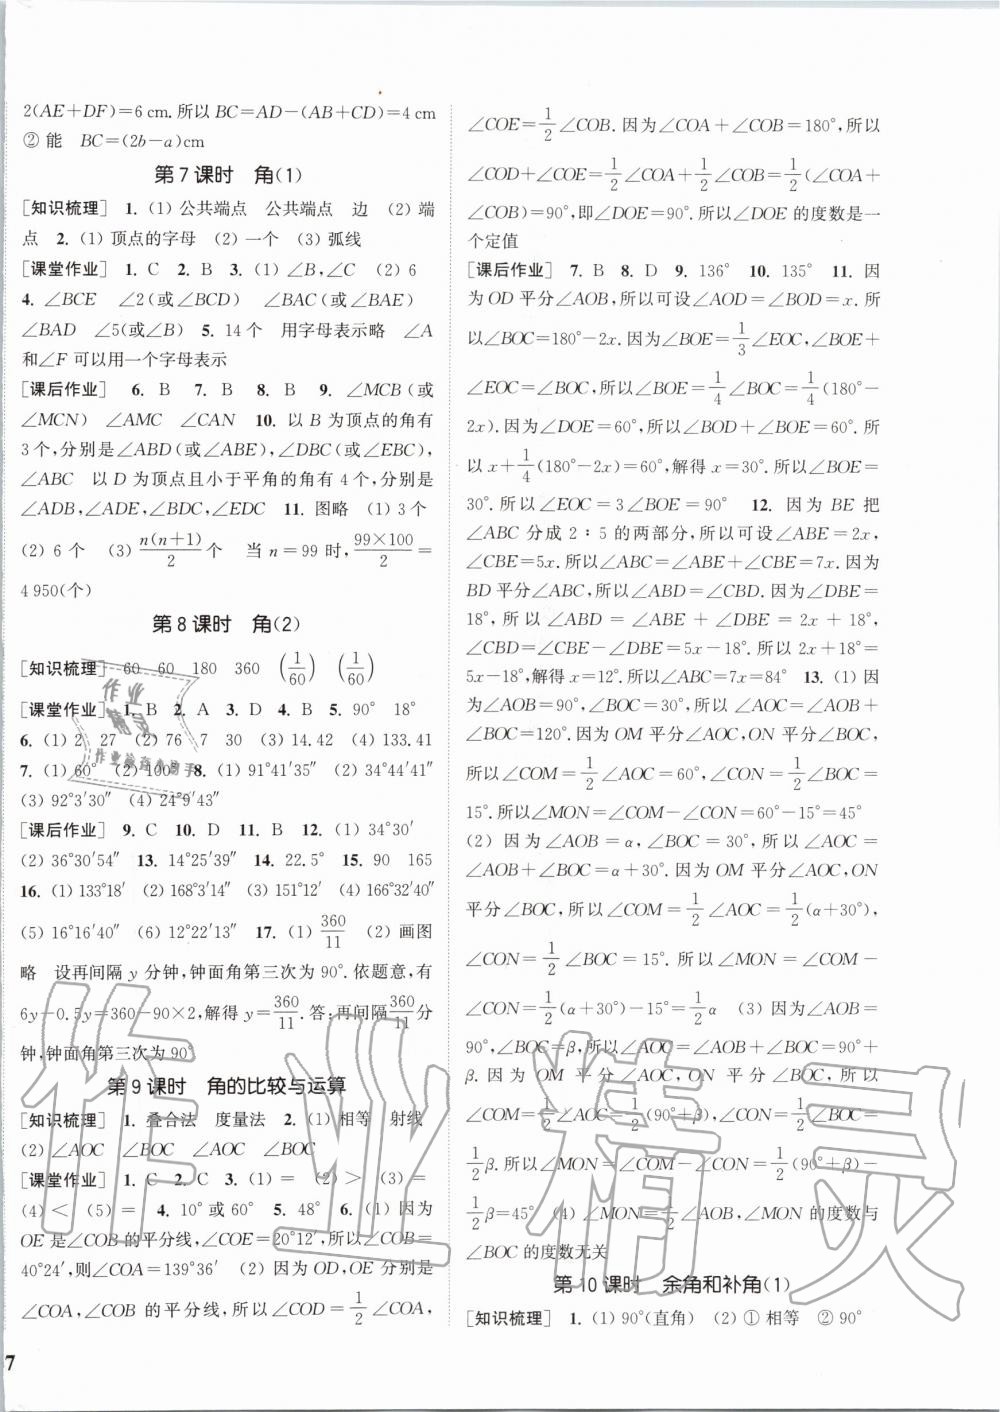 2(AE+DF)=6 cm.所以 BC=AD-(AB+CD)=4 cm
② 能 BC=(2b-a)cm
第 7 课时 角(1)
[知识梳理] 1. (1) 公共端点 公共端点 边 (2) 端
点 2. (1) 顶点的字母 (2) 一个 (3) 弧线
[课堂作业] 1. C 2. B 3. (1) ∠B,∠C (2) 6
4. ∠BCE ∠2(或∠BCD) ∠BAC(或∠BAE)
∠BAD ∠5(或∠B) 5. 14 个 用字母表示略 ∠A
和∠F 可以用一个字母表示
[课后作业] 6. B 7. B 8. B 9. ∠MCB (或
∠MCN) ∠AMC ∠CAN 10. 以 B 为顶点的角有
3 个,分别是∠ABD(或∠ABE),∠DBC(或∠EBC),
∠ABC 以 D 为顶点且小于平角的角有 4 个,分别是
∠ADB,∠ADE,∠BDC,∠EDC 11. 图略 (1) 3 个
(2) 6 个 (3) n(n+1)/2 个 当 n=99 时, 99×100/2=
4 950(个)
第 8 课时 角(2)
[知识梳理] 60 60 180 360 (1/60) (1/60)
[课堂作业] 1. B 2. A 3. D 4. B 5. 90° 18°
6. (1) 2 27 (2) 76 7 30 (3) 14.42 (4) 133.41
7. (1) 60° (2) 100° 8. (1) 91°41′35″ (2) 34°44′41″
(3) 92°3′30″ (4) 24°9′43″
[课后作业] 9. C 10. D 11. B 12. (1) 34°30′
(2) 36°30′54″ 13. 14°25′39″ 14. 22.5° 15. 90 165
16. (1) 133°18′ (2) 168°3′14″ (3) 151°12′ (4) 166°32′40″
(5) 16°16′40″ (6) 12°22′13″ 17. (1) 360/11 (2) 画图
略 设再间隔 y 分钟,钟面角第三次为 90°.依题意,有
6y-0.5y=360-90×2,解得 y=360/11. 答:再间隔360/11分
钟,钟面角第三次为 90°
第 9 课时 角的比较与运算
[知识梳理] 1. 叠合法 度量法 2. (1) 相等 射线
(2) ∠AOC ∠BOC ∠AOC ∠BOC
[课堂作业] 1. C 2. C 3. (1) = (2) > (3) =
(4) < (5) = 4. 10°或 60° 5. 48° 6. (1) 因为
OE 是∠COB 的平分线,∠COE=20°12′,所以∠COB=
40°24′,则∠COA=139°36′ (2) 因为 OD,OE 分别是
∠COA,∠COB 的平分线,所以∠COD=1/2∠COA,
∠COE=1/2∠COB.因为∠COA+∠COB=180°,所以
∠COD+∠COE=1/2∠COA+1/2∠COB=1/2(∠COA+
∠COB)=90°,即∠DOE=90°.所以∠DOE 的度数是一
个定值
[课后作业] 7. B 8. D 9. 136° 10. 135° 11. 因
为 OD 平分∠AOB,所以可设∠AOD=∠BOD=x.所
以∠BOC=180°-2x.因为∠BOE=1/3∠EOC,∠BOE+
∠EOC=∠BOC,所以∠BOE=1/4∠BOC=1/4(180°-
2x).因为∠DOE=60°,所以∠BOD+∠BOE=60°.所
以 x+1/4(180°-2x)=60°,解得 x=30°.所以∠BOE=
30°.所以∠EOC=3∠BOE=90° 12. 因为 BE 把
∠ABC 分成 2∶5 的两部分,所以可设∠ABE=2x,
∠CBE=5x.所以∠ABC=∠ABE+∠CBE=7x.因为
BD 平分∠ABC,所以∠ABD=∠CBD.因为∠DBE=
18°,所以∠ABD=∠ABE+∠DBE=2x+18°,
∠CBD=∠CBE-∠DBE=5x-18°.所以 2x+18°=
5x-18°,解得 x=12°.所以∠ABC=7x=84° 13. (1) 因
为∠AOB=90°,∠BOC=30°,所以∠AOC=∠AOB+
∠BOC=120°.因为 OM 平分∠AOC,ON 平分∠BOC,
所以∠COM=1/2∠AOC=60°,∠CON=1/2∠BOC=
15°.所以∠MON=∠COM-∠CON=60°-15°=45°
(2) 因为∠AOB=α,∠BOC=30°,所以∠AOC=
∠AOB+∠BOC=α+30°.因为 OM 平分∠AOC,ON
平分∠BOC,所以∠COM=1/2∠AOC=1/2(α+30°),
∠CON=1/2∠BOC=15°.所以∠MON=∠COM-
∠CON=1/2(α+30°)-15°=1/2α (3) 因为∠AOB=
90°,∠BOC=β,所以∠AOC=∠AOB+∠BOC=90°+
β.因为 OM 平分∠AOC,ON 平分∠BOC,所以
∠COM=1/2∠AOC=1/2(90°+β),∠CON=1/2∠BOC=
1/2β.所以∠MON=∠COM-∠CON=1/2(90°+β)-
1/2β=45° (4) ∠MON=1/2∠AOB,∠MON 的度数与
∠BOC 的度数无关
第 10 课时 余角和补角(1)
[知识梳理] 1. (1) 90°(直角) (2) ① 相等 ② 90°
7
作业精灵